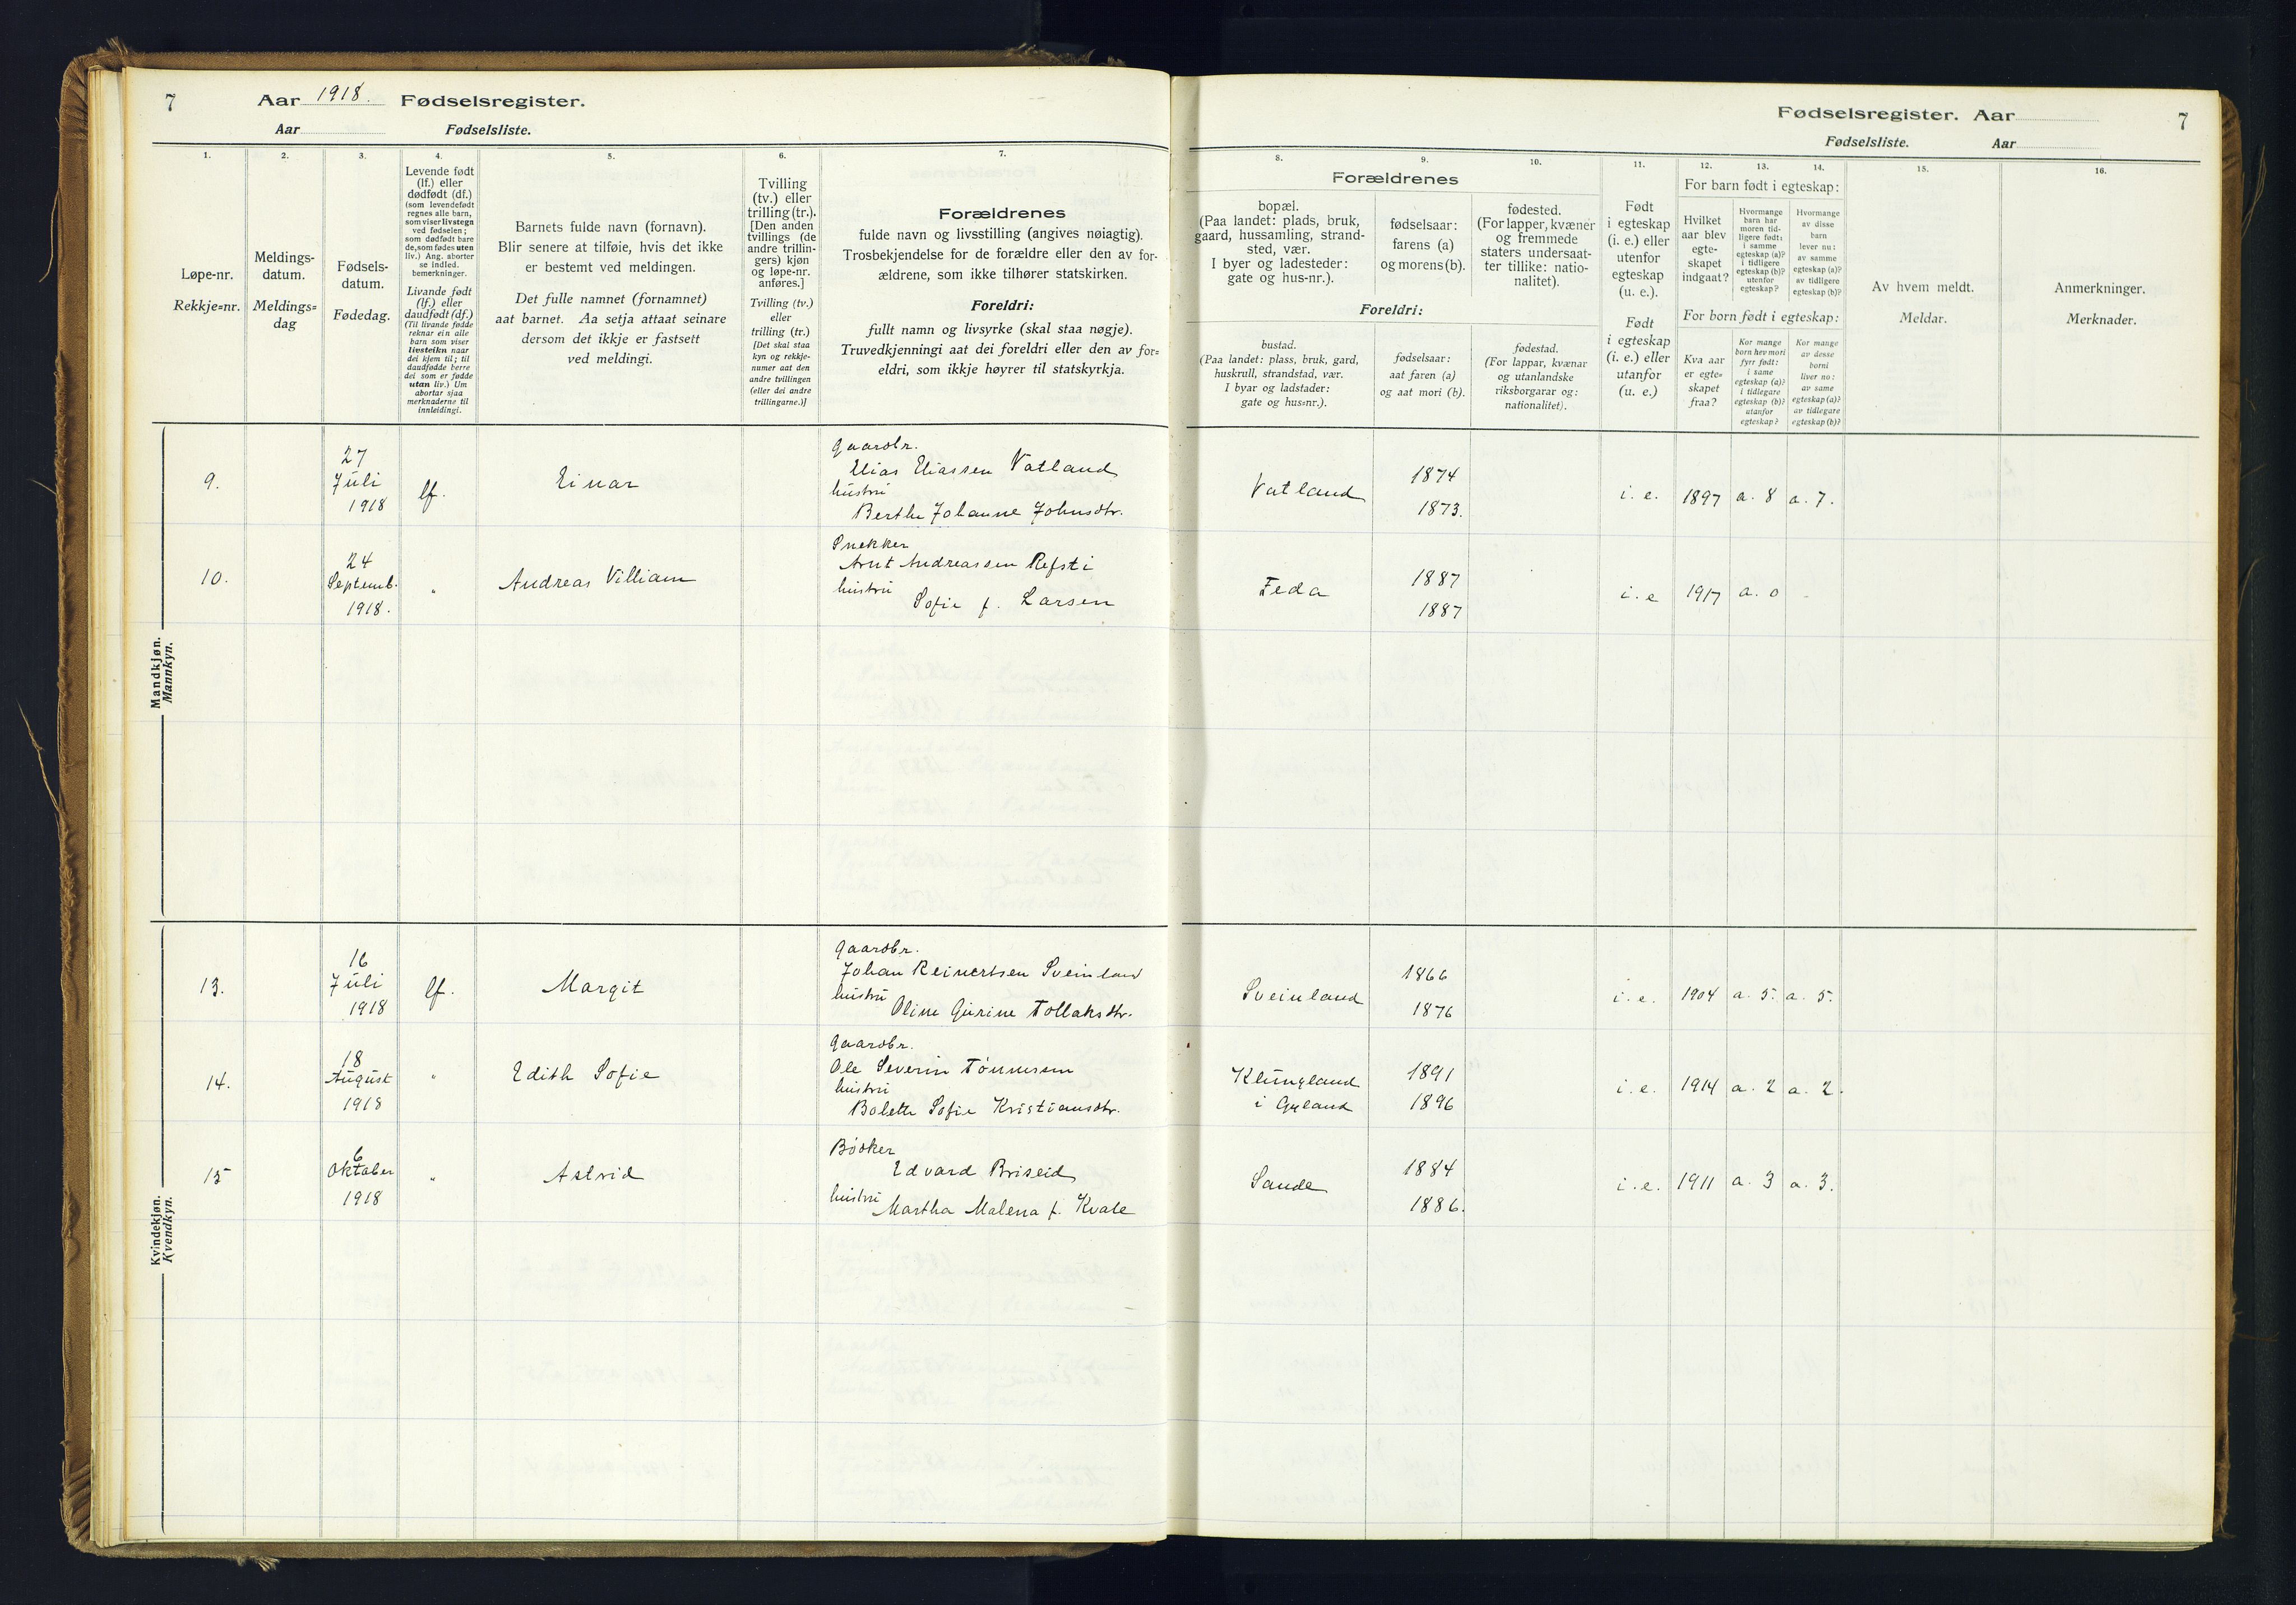 7
Aar 1918. Fødselsregister.
Aar Fødselsliste.
1.
Løpe-nr.
Rekkje=nr.
2.
Meldings-
datum.
Meldings=
dag
3.
Fødsels-
datum.
Fødedag.
4.
Levende født
(lf.) eller
dødfødt (df.)
(som levendefødt
regnes alle barn,
som viser livstegn
ved fødselen;
som dødfødt bare
de, som fødes uten
liv.) Ang. aborter
se indled.
bemerkninger.
Livande født
(lf.) eller
daudfødt (df.)
(Til livande fødde
reknar ein alle
barn som viser
livsteikn naar
dei kjem til; til
daudfødde berre
dei som er fødde
utan liv.) Um
abortar sjaa
merknaderne til
innleidingi.
5.
Barnets fulde navn (fornavn).
Blir senere at tilføie, hvis det ikke
er bestemt ved meldingen.
Det fulle namnet (fornamnet)
aat barnet. Aa setja attaat seinare
dersom det ikkje er fastsett
ved meldingi.
6.
Tvilling
(tv.) eller
trilling (tr.).
[Den anden
tvillings (de
andre trillin-
gers) kjøn
og løpe-nr.
anføres.]
Tvilling (tv.)
eller
trilling (tr.)
[Det skal staa
kyn og rekkje-
numer aat den
andre tvillingen
(eller dei andre
trillingarne.)]
7.
Forældrenes
fulde navn og livsstilling (angives nøiagtig).
Trosbekjendelse for de forældre eller den av for-
ældrene, som ikke tilhører statskirken.
Foreldri:
fullt namn og livsyrke (skal staa nøgje).
Truvedkjenningi aat dei foreldri eller den av for=
eldri, som ikkje høyrer til statskyrkja.
Fødselsregister. Aar
7
Fødselsliste. Aar
Forældrenes
8.
bopæl.
(Paa landet: plads, bruk,
gaard, hussamling, strand-
sted, vær.
I byer og ladesteder:
gate og hus-nr.).
9.
fødselsaar:
farens (a)
og morens (b).
10.
fødested.
(For lapper, kvæner
og fremmede
staters undersaat-
ter tillike: natio-
nalitet).
Foreldri:
bustad.
(Paa landet: plass, bruk, gard,
huskrull, strandstad, vær.
I byar og ladstader:
gate og hus=nr.).
fødselsaar:
aat faren (a)
og aat mori (b).
fødestad.
(For lappar, kvænar
og utanlandske
riksborgarar og:
nationalitet).
11.
Født
i egteskap
(i. e.) eller
utenfor
egteskap
(u. e.).
Født
i egteskap
(i. e.) eller
utanfor
(u. e.)
12.
13.
14.
For barn født i egteskap:
Hvilket
aar blev
egte-
skapet
indgaat?
Hvormange
barn har
moren tid-
ligere født:
i samme
egteskap (a)?
i tidligere
egteskap (b)?
utenfor
egteskap?
Hvormange
av disse
barn
lever nu:
av samme
egteskap (a)?
av tidligere
egteskap (b)?
For born født i egteskap:
Kva aar
er egte=
skapet
fraa?
Kor mange
born hev mori
fyrr født:
i same
egteskap (a)?
i tidlegare
egteskap (b)?
utanfor
egteskap?
Kor mange
av desse
borni
liver no:
av same
egteskap (a)?
av tidlegare
egteskap (b)?
15.
Av hvem meldt.
Meldar.
16.
Anmerkninger.
Merknader.
Mandkjøn.
Mannkyn.
9.
27
Juli
1918
lf.
Einar
Gaardbr.
Elias Eliassen Vatland
hustru
Berthe Johanne Johnsdtr.
Vatland
1874
1873.
i. e.
1897
a. 8
a. 7.
10.
24
Septemb.
1918.
"
Andreas Villiam
Snekker
Arnt Andreassen Refsti
hustru
Sofie f. Larsen
Feda
1887
1887
i. e
1917
a. 0
-
Kvindekjøn.
Kvendkyn.
13.
16
Juli
1918
lf.
Margit
Gaardbr.
Johan Reinertsen Sveinland
hustru
Oline Gurine Tollaksdtr.
Sveinland
1866
1876
i. e.
1904
a. 5.
a. 5.
14.
18
August
1918
"
Edith Sofie
Gaardbr.
Ole Severin Tønnesen
hustru
Bolette Sofie Kristiansdtr.
Klungland
i Gyland
1891
1896
i. e.
1914
a. 2
a. 2.
15
6
Oktober
1918
"
Astrid
Bødker
Edvard Briseid
hustru
Martha Malena f. Kvale
Sande
1884
1886.
i. e.
1911
a. 3
a. 3.